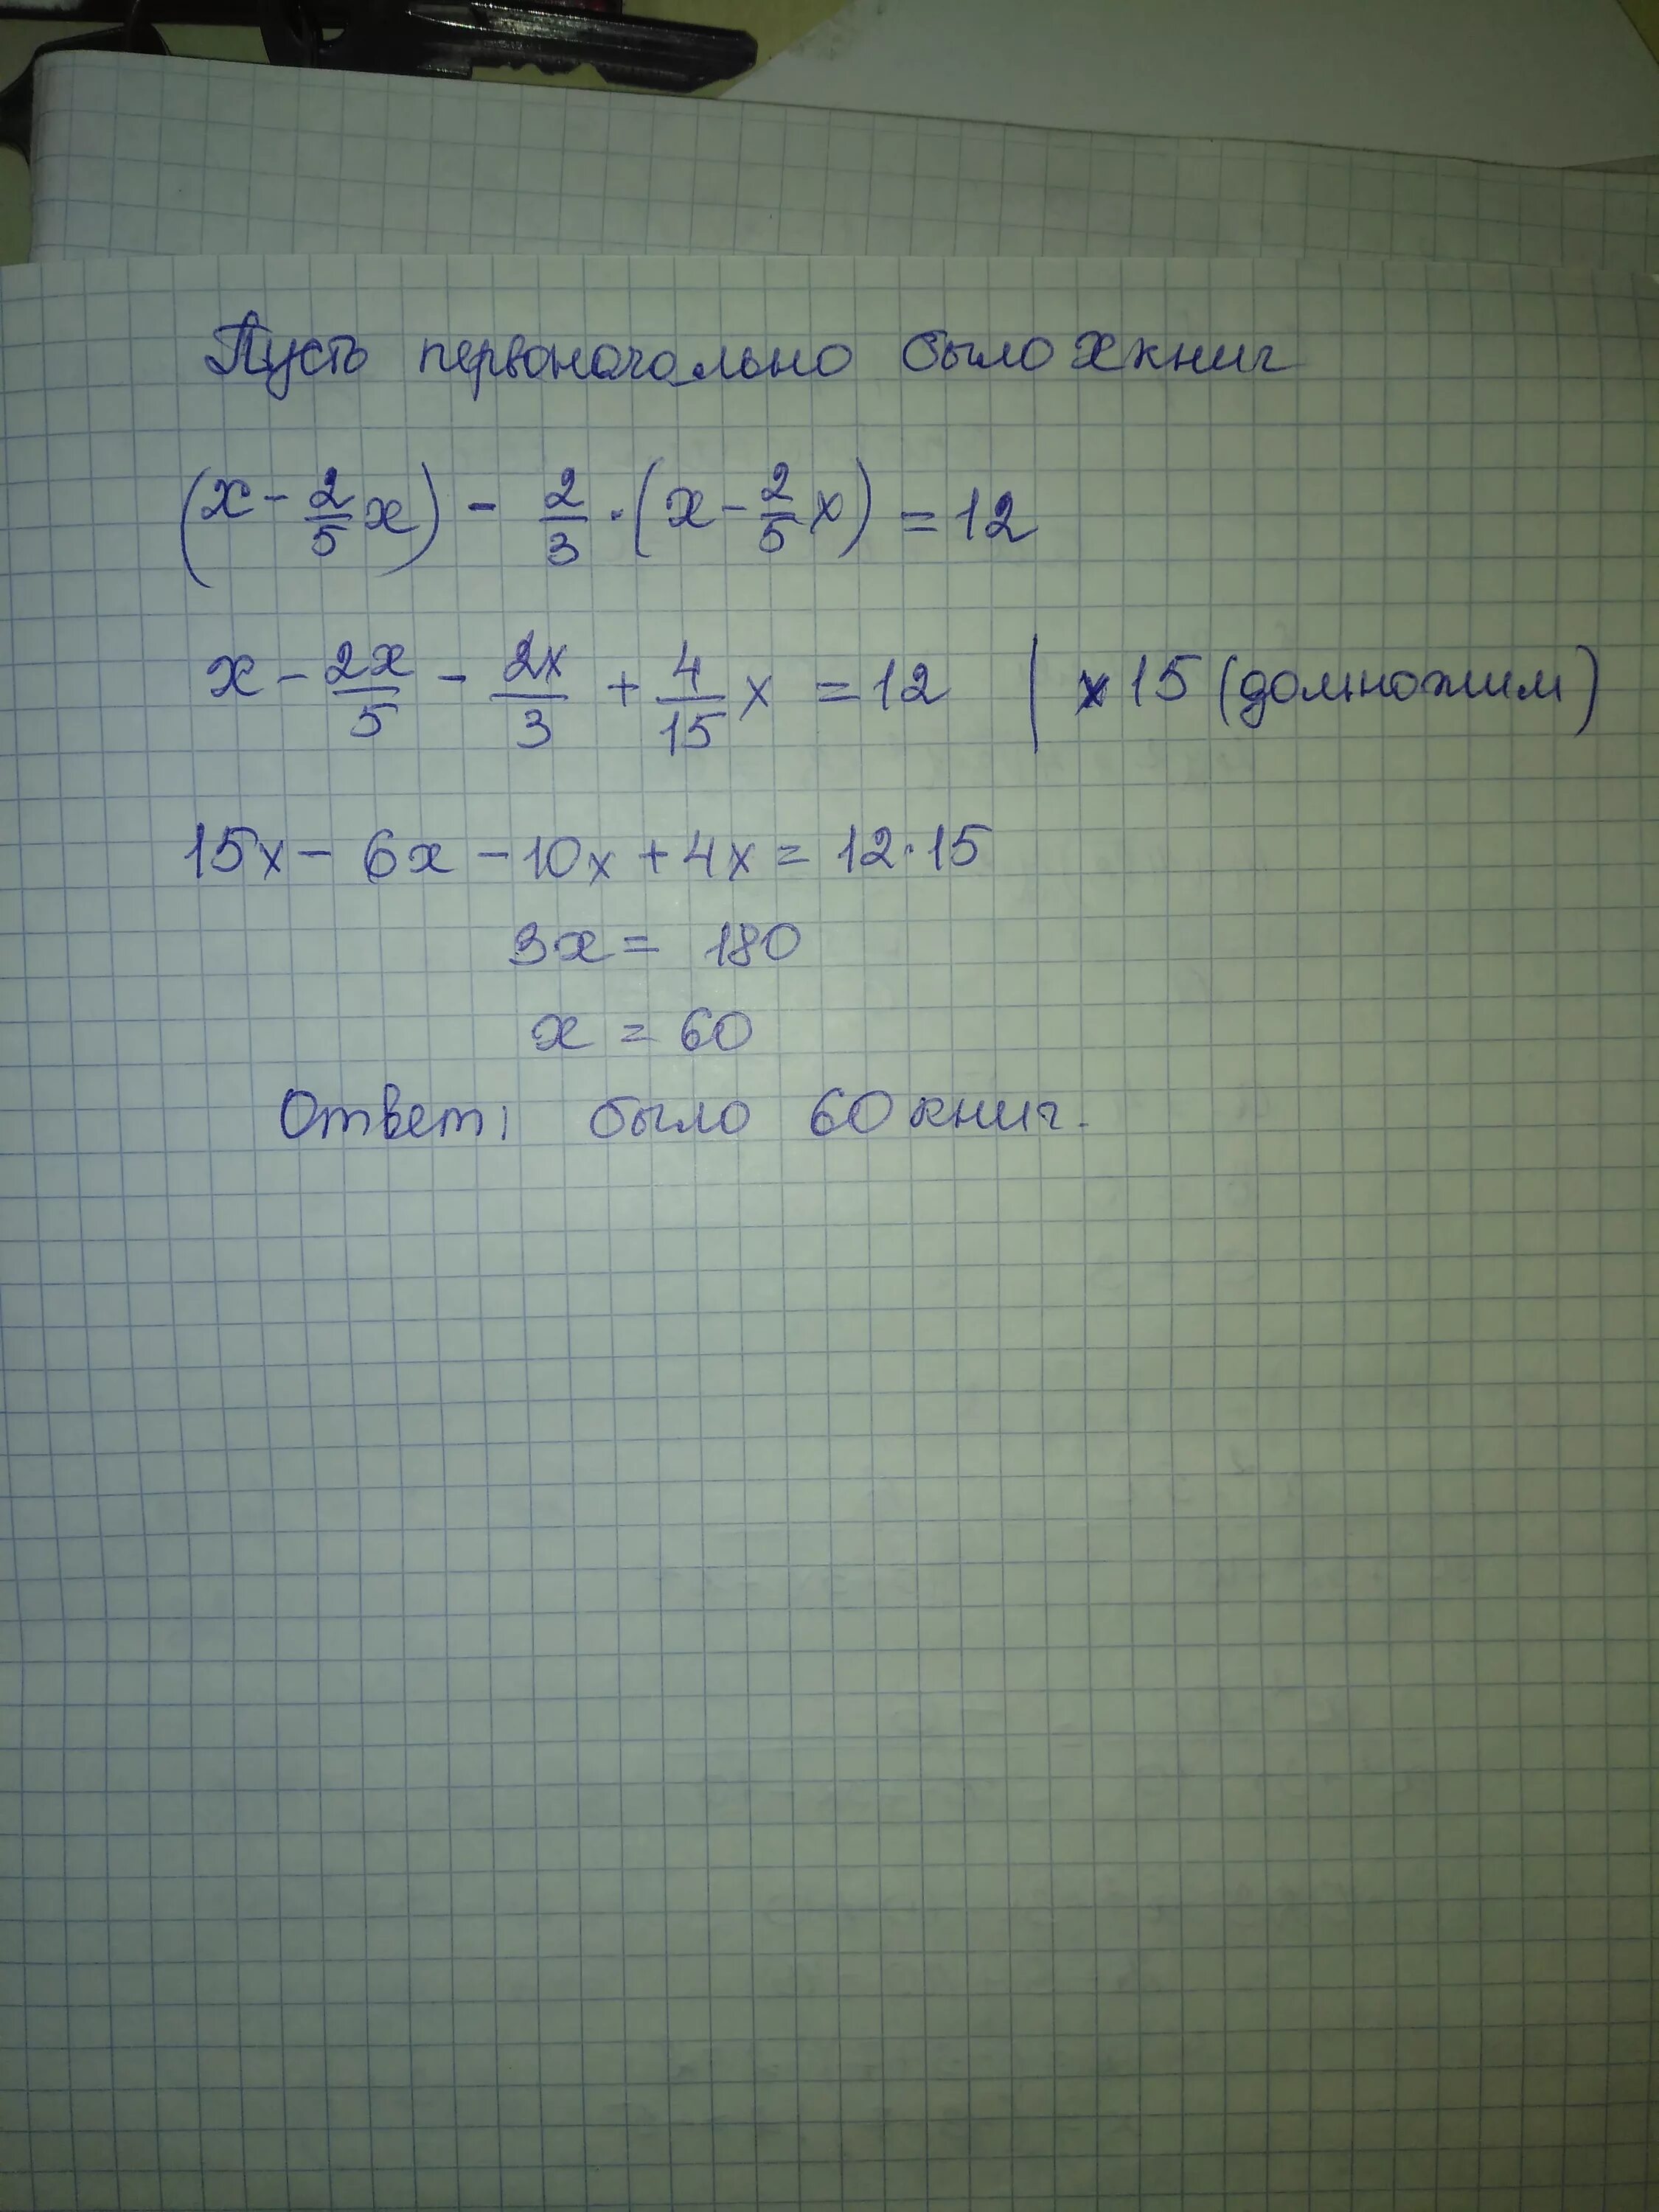 Пусть первоначально было x книг
(x - 2/5 x) - 2/3 · (x - 2/5 x) = 12
x - 2x/5 - 2x/3 + 4/15 x = 12 | x 15 (домножим)
15x - 6x - 10x + 4x = 12 · 15
3x = 180
x = 60
Ответ: было 60 книг.